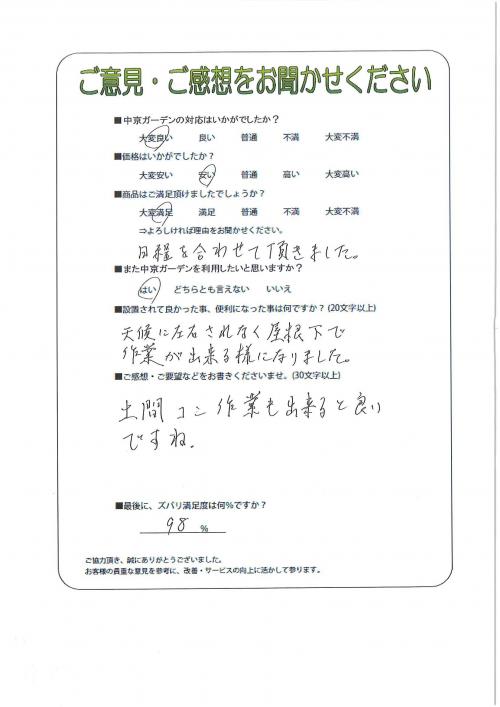 ご意見・ご感想をお聞かせください
■中京ガーデンの対応はいかがでしたか？
大変良い 良い 普通 不満 大変不満
■価格はいかがでしたか？
大変安い 安い 普通 高い 大変高い
■商品はご満足頂けましたでしょうか？
大変満足 満足 普通 不満 大変不満
⇒よろしければ理由をお聞かせください。
日程を合わせて頂きました。
■また中京ガーデンを利用したいと思いますか？
はい どちらとも言えない いいえ
■設置されて良かった事、便利になった事は何ですか？(20文字以上)
天候に左右されなく屋根下で
作業が出来る様になりました。
■ご感想・ご要望などをお書きくださいませ。(30文字以上)
土間コン作業も出来ると良い
ですね.
■最後に、ズバリ満足度は何%ですか？
98 %
ご協力頂き、誠にありがとうございました。
お客様の貴重な意見を参考に、改善・サービスの向上に活かして参ります。